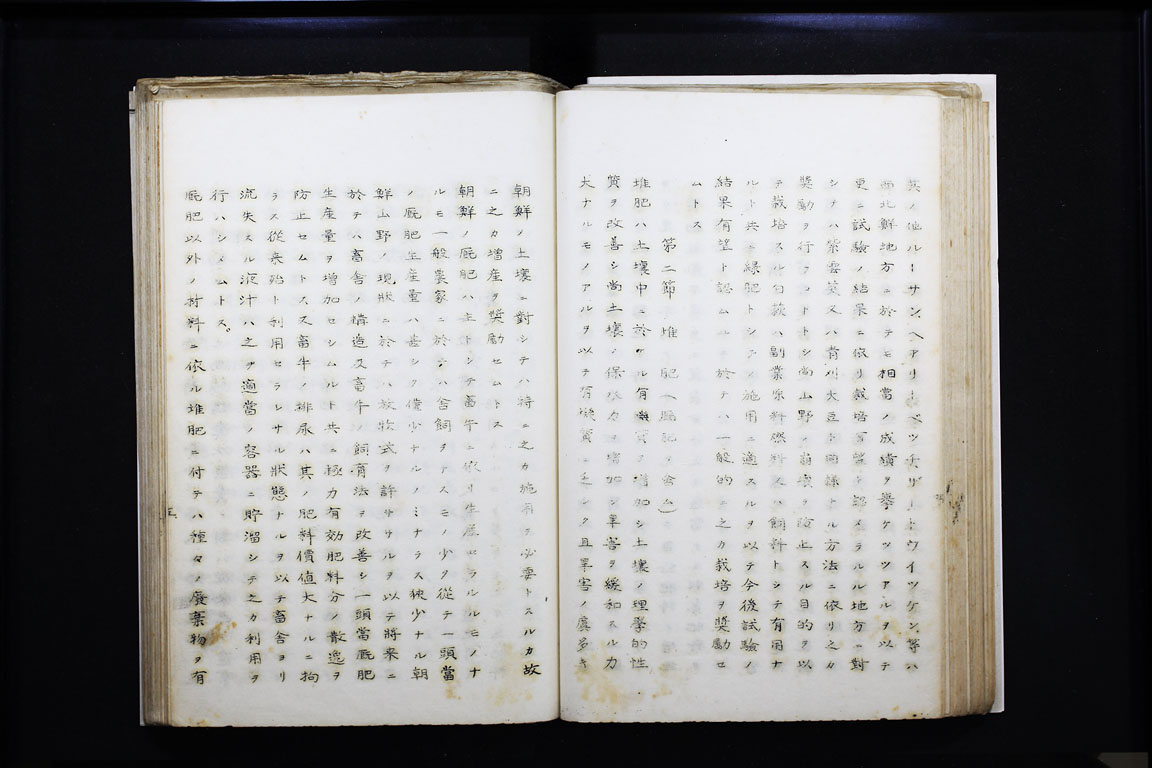 其ノ他ルーサンヘアリーベツチザートウイツケン等ハ
西北鮮地方ニ於テモ相當ノ成績ヲ擧ケツツアルヲ以テ
更ニ試驗ノ結果ニ依リ栽培有望ト認メラルル地方ニ對
シテハ紫雲英又ハ青刈大豆ト同樣ナル方法ニ依リ之カ
奬勵ヲ行フコトトシ尚山野ノ崩壞ヲ防止スル目的ヲ以
テ栽培スル胡枝ハ副業原料燃料又ハ飼料トシテ有用ナ
ルト共ニ緑肥トシテノ施用ニ適スルヲ以テ今後試驗ノ
結果有望ト認ムルニ於テハ一般的ニ之カ栽培ヲ奬勵セ
ムトス
第二節 堆肥(厩肥ヲ含ム)
堆肥ハ土壤中ニ於ケル有機質ヲ増加シ土壤ノ理學的性
質ヲ改善シ尚土壤ノ保水力ヲ増加シ旱害ヲ緩和スル力
大ナルモノアルヲ以テ有機質ニ乏シク且旱害ノ虞多キ
朝鮮ノ土壤ニ對シテハ特ニ之カ施用ヲ必要トスルカ故
ニ之カ増産ヲ奬勵セムトス
朝鮮ノ厩肥ハ主トシテ畜牛ニ依リ生産セラルルモノナ
ルモ一般農家ニ於テハ舎飼ヲナスモノ少ク從テ一頭當
ノ厩肥生産量ハ甚シク僅少ナルノミナラス狹少ナル朝
鮮山野ノ現狀ニ於テハ放牧式ヲ許ササルヲ以テ將來ニ
於テハ畜舎ノ構造及畜牛ノ飼育法ヲ改善シ一頭當厩肥
生産量ヲ増加セシムルト共ニ極力有効肥料分ノ散逸ヲ
防止セムトス又畜牛ノ排尿ハ其ノ肥料價値大ナルニ拘
ラス從來殆ト利用セラレサル狀態ナルヲ以テ畜舎ヨリ
流失スル液汁ハ之ヲ適當ノ容器ニ貯溜シテ之カ利用ヲ
行ハシメムトス。
厩肥以外ノ材料ニ依ル堆肥ニ付テハ種々ノ廢棄物ヲ有